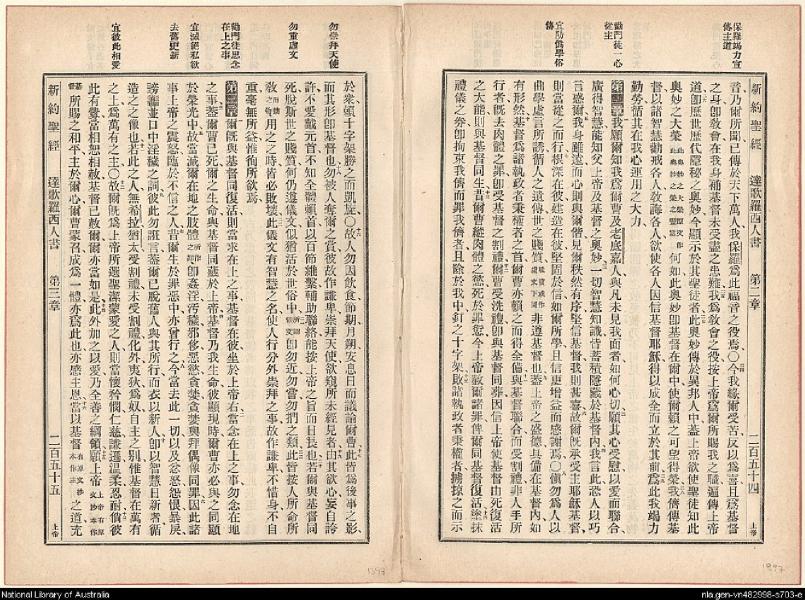 保羅竭力宣
傳主道
勸門徒一心
從主
宜防僞學俗
傳
新約聖經 達歌羅西人書 第二章 二百五十四 上帝
音乃爾所聞已傳於天下萬人我保羅爲此福音之役焉〇今我緣爾受苦反以爲喜且爲基督
之身卽敎會在我身補基督未受盡之患難我爲敎會之役按上帝爲爾所賜我之職遍傳上帝
道卽歷世歷代隱秘之奧妙今顯示於其聖徒者此奧妙傳於異邦人中蓋上帝欲使聖徒知此
奧妙之大榮何如此奧妙卽基督在爾中使爾
督以諸智慧勸戒各人敎誨各人欲使各人因信基督耶穌得以成全而立於其前爲此我竭力
勤勞循其在我心運用之大力
第二章我願爾知我爲爾曹及老底嘉人與凡未見我面者如何心切願其心受慰以愛而聯合
廣得智慧能知父上帝及基督之奧妙一切智慧知識悉蓄積隱藏於基督內我言此恐人以巧
言惑爾我身雖遠而心則與爾偕見爾秩然有序堅信基督我則甚喜故爾旣承受主耶穌基督
則當從之而行根深在彼建在彼堅固於信如爾所學且信更增益而感謝焉〇愼勿爲人以
曲學虛言所誘循人之遺傳世之賤質非遵基督也蓋上帝之盛德具備在基督內如
有形然基督爲諸執政者秉權者之首爾曹亦賴之而得全備與基督聯合而受割禮非人手所
行者旣去肉體之罪卽受基督之割禮爾曹受洗禮卽與基督同葬因信上帝使基督由死復活
之大能則與基督同生昔爾曹縱肉體之慾死於罪愆今上帝赦爾諸罪俾爾同基督復活塗抹
禮儀之券卽拘束我儕而罪我儕者且除於我中釘之十字架敗諸執政者秉權者擄掠之而示
勿崇拜天使
勿重虛文
勸門徒思念
在上之事
宜滅絕私欲
去舊更新
宜彼此相愛
於衆賴十字架勝之而凱旋〇故人勿因飮食節期月朔安息日而議論爾曹此皆爲後事之影
而其形卽基督也勿被人奪爾之賞彼故作謙卑崇拜天使欲窺所未經見者由其欲心妄自誇
許不愛戴元首不知全體賴首以百節維繫輔助聯絡能按上帝之旨而日長也若爾與基督同
死脫斯世之賤質何仍遵儀文似猶活於世俗中卽勿近勿嘗勿捫之類此皆按人所命所
敎用之之時皆必敗壞此儀文有智慧之名使人行分外崇拜之事故作謙卑不惜身不自
重毫無所益惟徇所欲焉
第三章爾旣與基督同復活則當求在上之事基督在彼坐於上帝右當念在上之事勿念在地
之事蓋爾曹已死爾之生命與基督同藏於上帝基督乃我生命彼顯現時爾曹亦必與之同顯
於榮光中故當滅爾在地之肢體卽姦淫污穢邪侈惡慾貪婪貪婪與拜偶像同罪因此諸
事上帝之震怒臨於不信之人昔爾生於罪惡中亦曾行之今當去此一切以及忿怒怨恨暴戾
謗讟並口中淫穢之詞彼此勿誑言蓋爾已脫舊人與其所行而衣以新人卽以智慧日新者循
造之之像也若此之人無希拉猶太受割禮未受割禮化外夷狄爲奴自主之別惟基督在萬有
之上爲萬有之主〇故爾旣爲上帝所選聖潔蒙愛之人則當懷矜憫仁慈謙遜溫柔忍耐倘彼
此有釁當相恕相赦基督已赦爾爾亦當如是此外加之以愛乃全善之綱領願上帝
所賜之和平主於爾心爾曹蒙召成爲一體亦爲此也亦感主恩當以基督之道充
新約聖經 達歌羅西人書 第三章 二百五十五 上帝
1897
1897
National Library of Australia
nla.gen-vn482998-s703-e